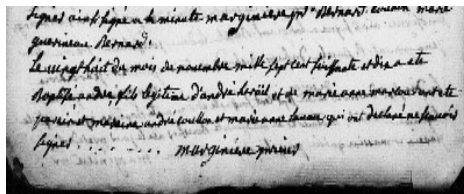 signés ainsi signé a la minute marginiere prs Bernard marie
guerineau Bernard.
Le vingt huit du mois de novembre mille sept cent soissante et dix a eté
Baptisé andré, fils legitime d'andré et de marie anne ont eté
parein et mareine andré et marie anne qui ont declaré ne scavoir
signer . . . . . . . . marginiere prieur